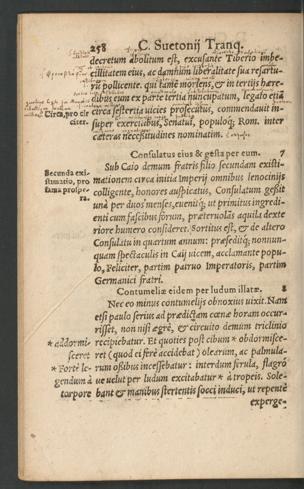 258 C. Suetonij Tranq.
decretum abolitum est, excusante Tiberio imbe-
cillitatem eius, ac damnum liberalitate sua resartu-
rū pollicente. qui tamē moriens, & in tertijs hære-
dibus eum ex parte tertia nuncupatum, legato etiā
circa sestertia uicies prosecutus, commendauit in-
super exercitibus, Senatui, populoq; Rom. inter
cæteras necessitudines nominatim.
Circa, pro cir
citer.
Consulatus eius & gesta per eum. 7
Sub Caio demum fratris filio secundam existi-
mationem circa initia Imperij omnibus lenocinijs
colligente, honores auspicatus, Consulatum gessit
unà per duos menses, euenitq; ut primitus ingredi-
enti cum fascibus forum, præteruolās aquila dexte
riore humero consideret. Sortitus est, & de altero
Consulatu in quartum annum: præseditq; nonnun-
quam spectaculis in Caij uicem, acclamante popu-
lo, Feliciter, partim patruo Imperatoris, partim
Germanici fratri.
Secunda exi
stimatio, pro
fama prospe-
ra.
Contumeliæ eidem per ludum illatæ. 8
Nec eo minus contumelijs obnoxius uixit. Nam
etsi paulo serius ad prædictam cœnæ horam occur-
risset, non nisi ægrè, & circuito demum triclinio
recipiebatur. Et quoties post cibum * obdormisce-
ret (quod ei ferè accidebat) olearum, ac palmula-
rum oßibus incessebatur: interdum ferula, flagró
ue uelut per ludum excitabatur * à tropeis. Sole-
bant & manibus stertentis socci induci, ut repentè
experge-
* addormi
sceret
* Fortè le-
gendum à
torpore